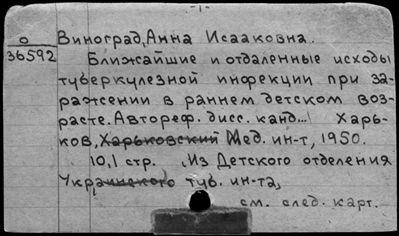 -1-
О Виноград, Анна Исааковна.
36592 Ближайшие и отдаленные исходы
туберкулезной инфекции при за-
ражении в раннем детском воз-
расте. Автореф. дисс. канд... Харь-
ков, Харьковский Мед. ин-т, 1950.
10,1 стр. (Из Детского отделения
Украинского туб. ин-та,
см. след. карт.